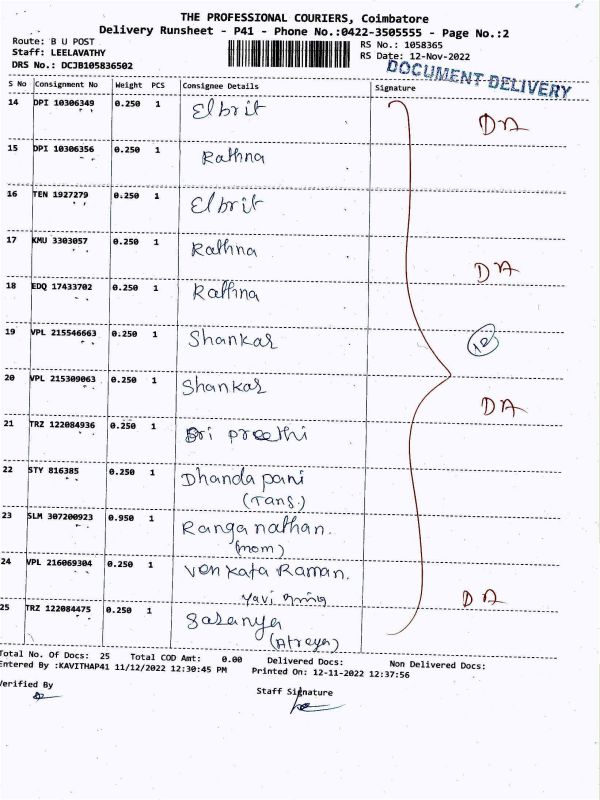 THE PROFESSIONAL COURIERS, Coimbatore
Delivery Runsheet - P41 - Phone No.:0422-3505555 - Page No.:2
Route: B U POST
RS No.: 1058365
Staff: LEELAVATHY
RS Date: 12-Nov-2022
DRS No.: DCJB105836502
DOCUMENT DELIVERY
S No Consignment No Weight PCS Consignee Details Signature
14 DPI 10306349 0.250 1 Elbrit DA
15 DPI 10306356 0.250 1 Rathna
16 TEN 1927279 0.250 1 Elbrit
17 KMU 3303057 0.250 1 Rathna DA
18 EDQ 17433702 0.250 1 Rathna
19 VPL 215546663 0.250 1 Shankar 12
20 VPL 215309063 0.250 1 Shankar DA
21 TRZ 122084936 0.250 1 Sri preethi
22 STY 816385 0.250 1 Dhanda pani
(Tans.)
23 SLM 307200923 0.950 1 Ranga nathan.
(mom)
24 VPL 216069304 0.250 1 Venkata Raman.
DA
25 TRZ 122084475 0.250 1 Saranya
(Atreya)
Total No. Of Docs: 25 Total COD Amt: 0.00 Delivered Docs: Non Delivered Docs:
Entered By :KAVITHAP41 11/12/2022 12:30:45 PM Printed On: 12-11-2022 12:37:56
Verified By
Staff Signature